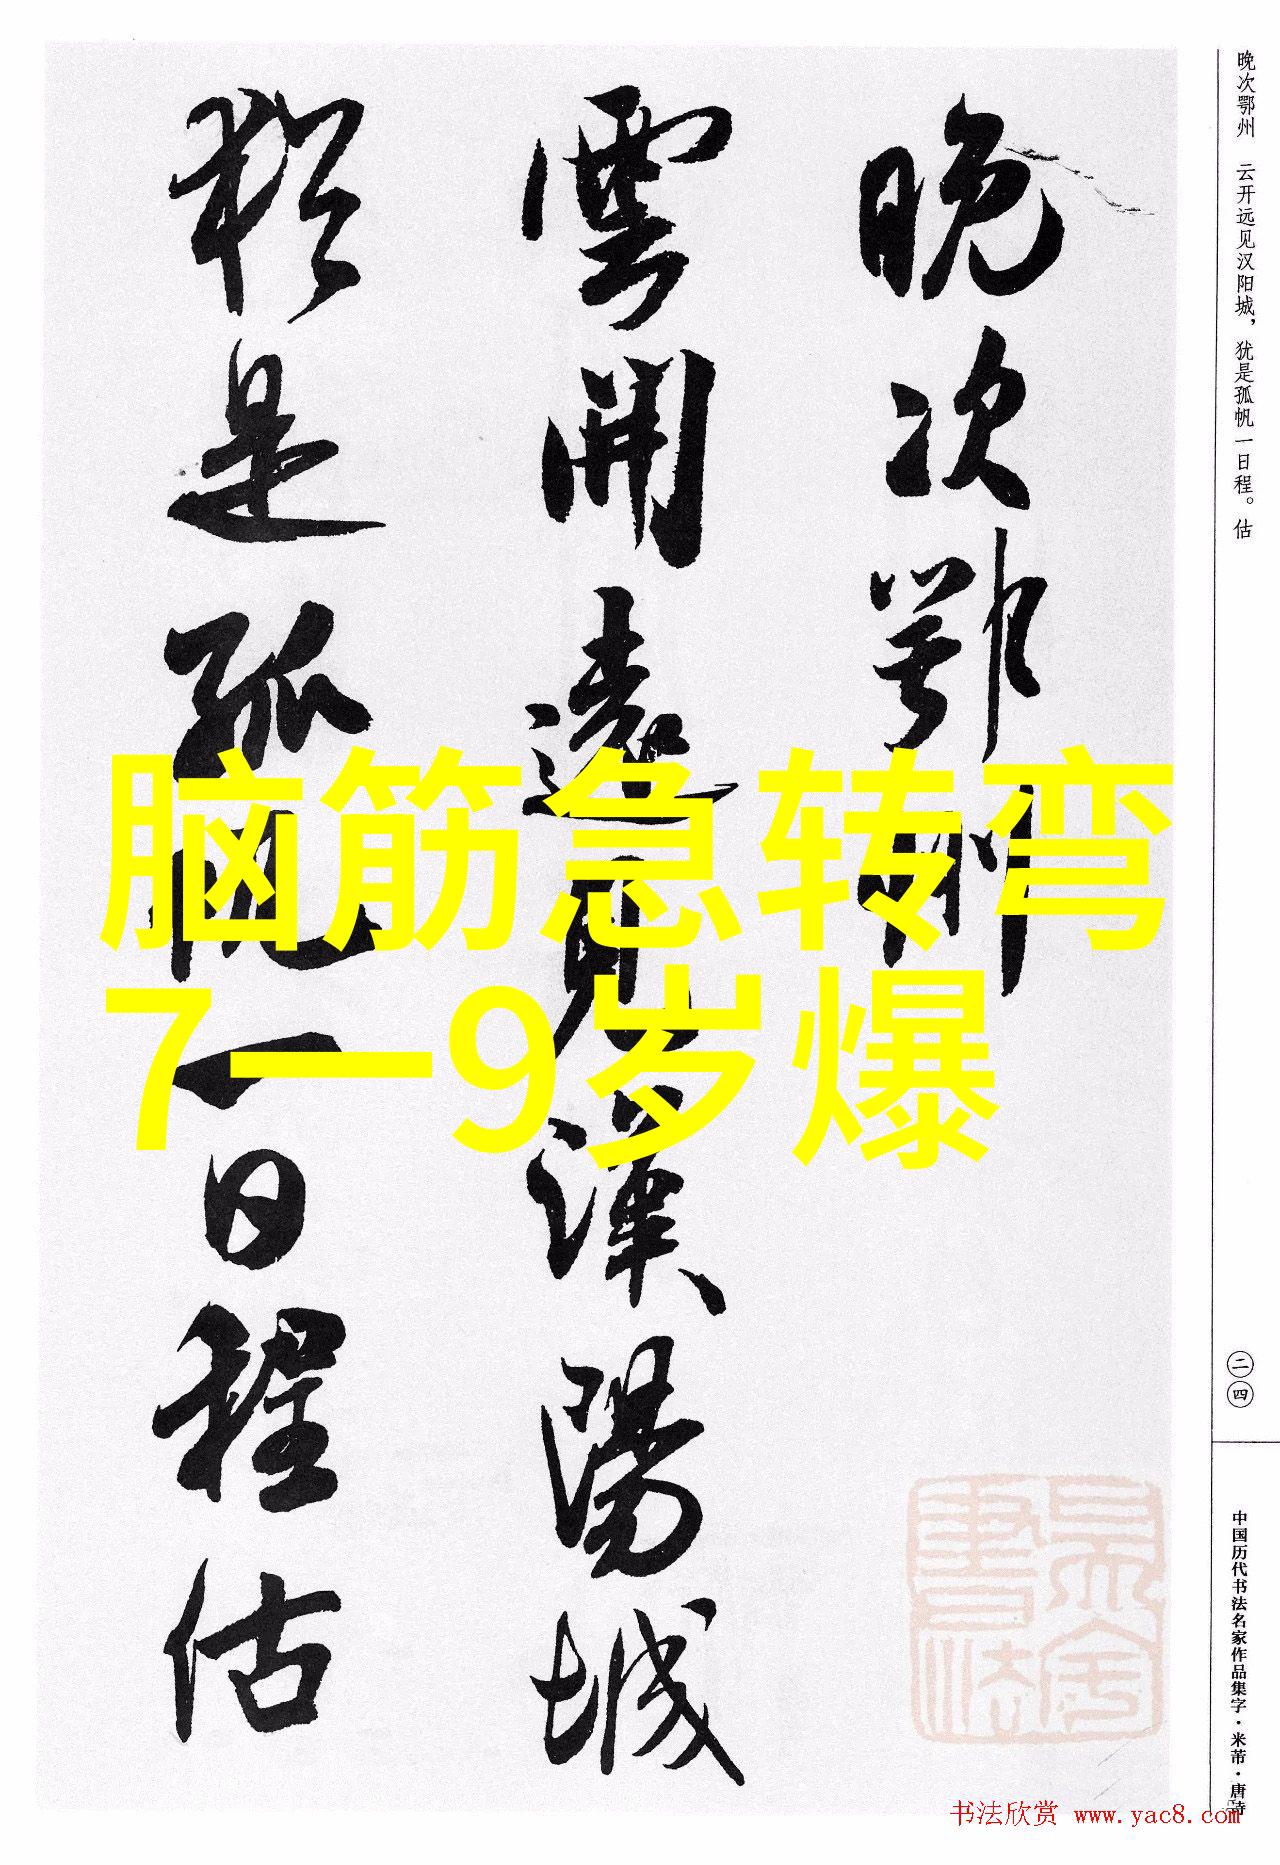 晚次鄂州
雲開遠見漢陽城
猶是孤帆一日程估
脑筋急转弯
7一9岁爆
晚次鄂州 云开远见汉阳城，犹是孤帆一日程。估
二四
中国历代书法名家作品集字·米芾·唐诗
书法欣赏 www.yac8.com